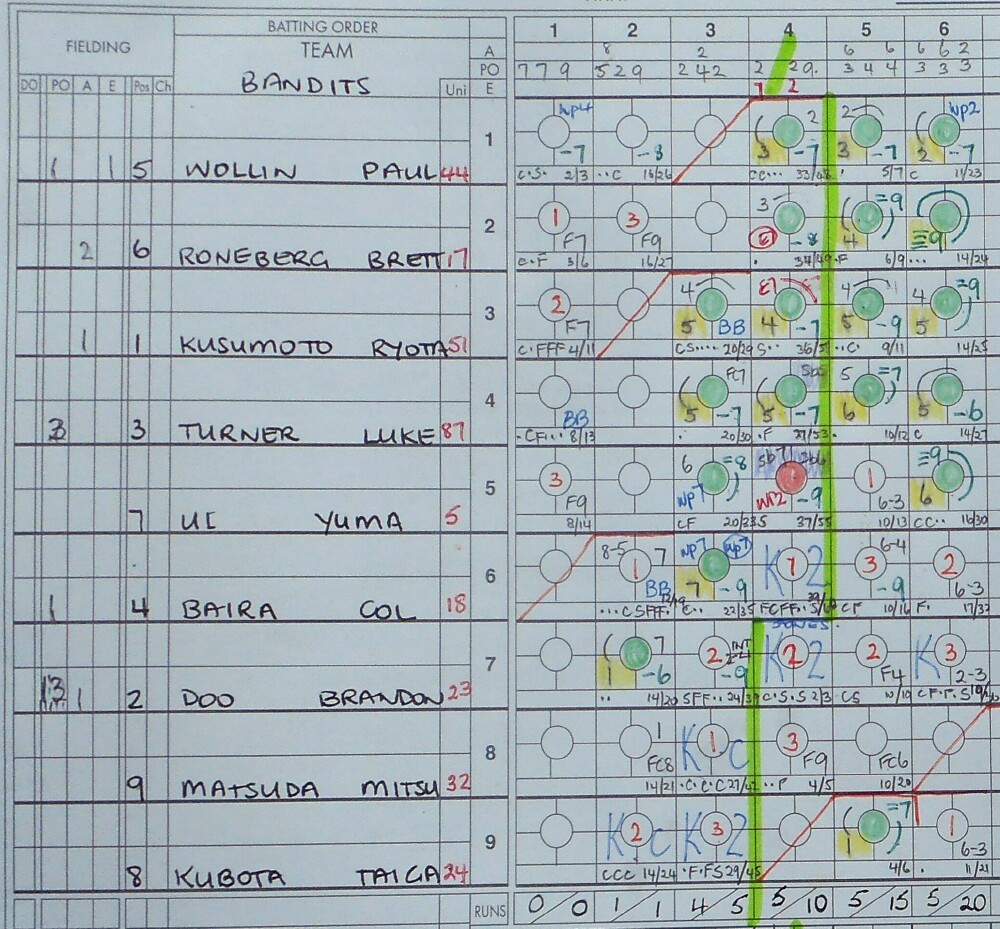 BATTING ORDER
FIELDING
TEAM
BANDITS
DO PO A E Pos Ch Uni
A
PO
E
1 2 3 4 5 6
8 2 6 6 6 6 2
7 7 9 5 2 9 2 4 2 2 2 9. 3 4 4 3 3 3
1 1 5 WOLLIN PAUL 44 1
2 6 RONEBERG BRETT 17 2
1 1 KUSUMOTO RYOTA 51 3
3 3 TURNER LUKE 87 4
7 UI YUMA 5 5
1 4 BAIRA COL 18 6
13 1 2 DOO BRANDON 23 7
9 MATSUDA MITSU 32 8
8 KUBOTA TAIGA 24 9
wp4 -7 -8 3 2 -7 2 3 -7 WP2 2 -7
C.S. 2/3 ..C 16/26 CC... 33/48 . 5/7 C 11/23
1 F7 3 F9 3 -8 =9 4 ≡9
C.F 3/6 16/27 . 34/49 .F 6/9 ... 14/24
2 F7 4 5 BB E7 4 -7 4 5 -9 4 =9 5
C.FFF 4/11 CS.... 20/29 S.. ..C. 9/11 14/25
BB FC7 5 -7 5 -7 5 =7 6 5 -6
.CF... 8/13 . 20/30 .F . 10/12 C 14/27
3 F9 6 =8 WP7 WP2 -9 1 6-3 ≡9 6
8/14 CF 37/55 10/13 CC.. 16/30
8-5 7 1 BB WP7 WP7 7 -9 K 1 2 6-4 3 -9 2 6-3
22/35 FCFF.. CF 10/16 F. 17/32
JONES.
7 1 -6 2 INT -9 K 2 2 2 F4 K 3 2-3
.. 14/20 SFF.. C.S.S 2/3 CS
1 FC8 K 1 C 3 F9 FC6
14/21 .C.C.C ..F 4/5 10/20
K 2 C K 3 2 =7 1 1 6-3
CCC 14/24 .F.FS 29/45 4/6 . 11/21
RUNS 0/0 1/1 4/5 5/10 5/15 5/20